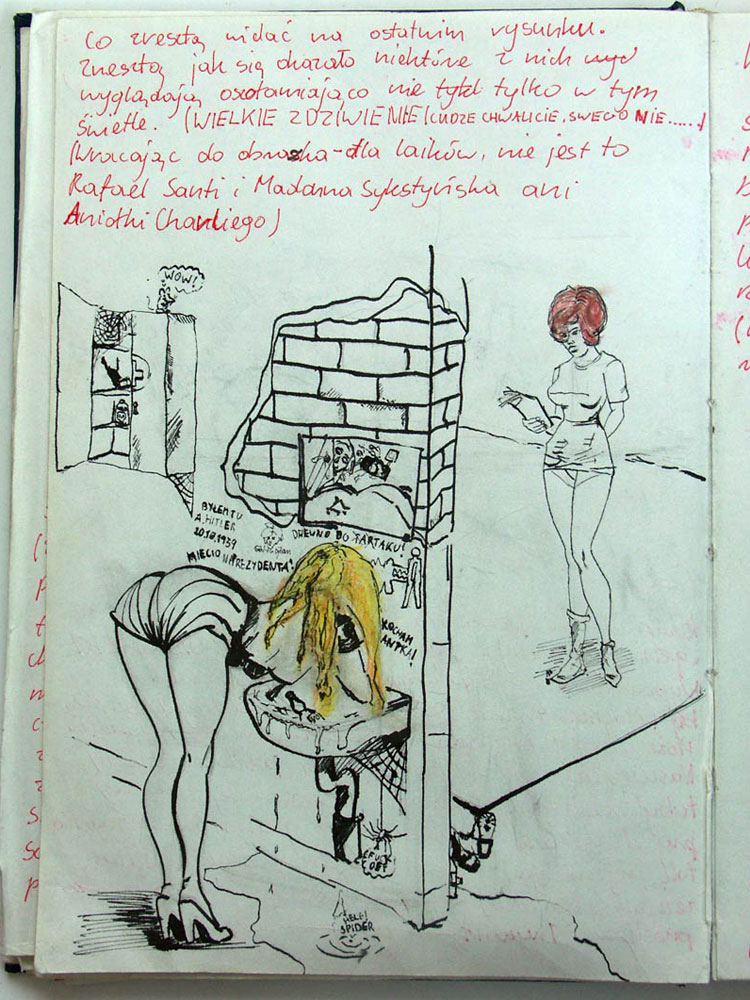 Co zresztą widać na ostatnim rysunku.
Zresztą jak się okazało niektóre z nich
wyglądają oszołamiająco nie tylko w tym
świetle. (WIELKIE ZDZIWIENIE (CUDZE CHWALICIE, SWEGO NIE......)
(Wracając do obrazka - dla laików, nie jest to
Rafael Santi i Madonna Sykstyńska ani
Aniołki Charliego)
WOW!
BYŁEM TU
A. HITLER
20.10.1939
DREWNO DO TARTAKU!
MIECIO NA PREZYDENTA!
KOCHAM
ANDKA!
HELP!
SPIDER